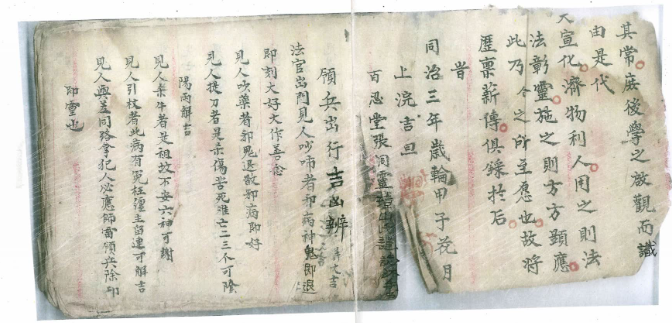 其常庶後學之啟觀而識
由是代
天宣化濟物利人用之則法
法彰靈施之則方方顯應
此乃今之所至應也故將
歷稟薪傳俱錄於后
旹
同治三年歲輪甲子花月
上浣吉旦
百忍堂張洞靈
領兵出行吉凶辨
法官出門見人吹啼者邪病神鬼即退
即刻大好大作善念
見人吹藥者邪鬼退散邪病即好
見人提刀者是杀傷苦死难亡二三个可除
陽雨解吉
見人牽牛者是祖故不安六神可謝
見人引杖者此病有冤枉壇主留連才解吉
見人與蓋同路拿犯人必應師當領兵除邪
即灵也